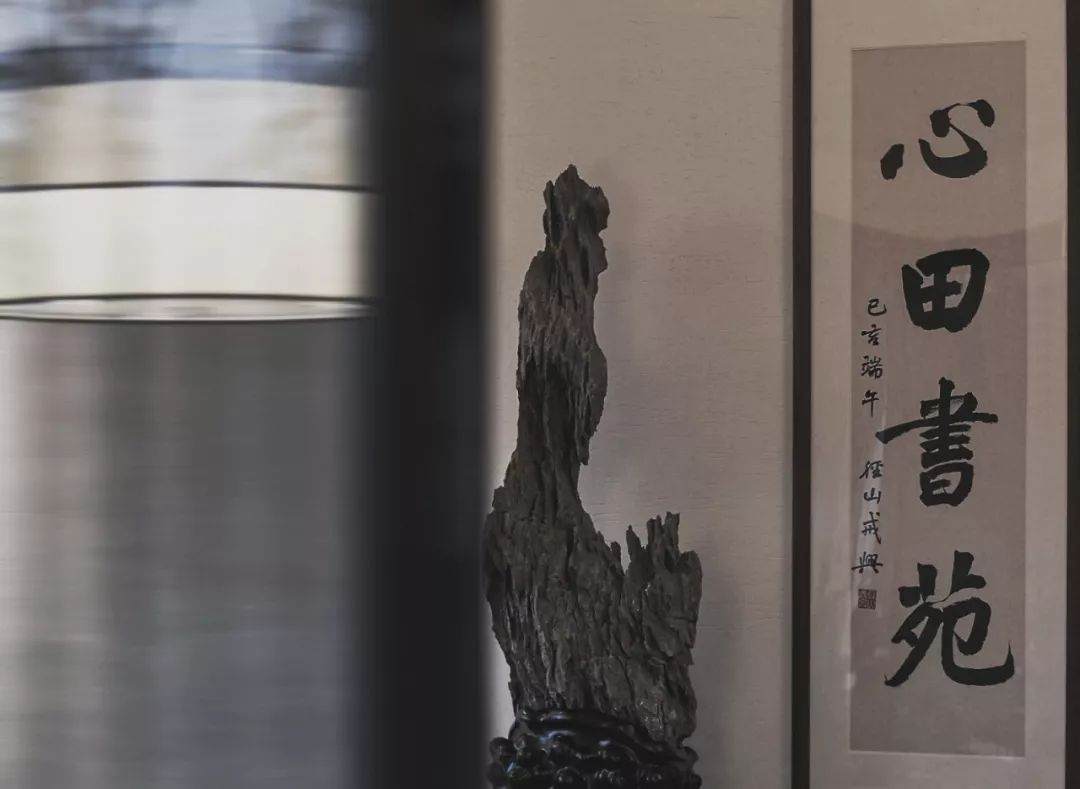 心田書苑
己亥端午 径山戒興